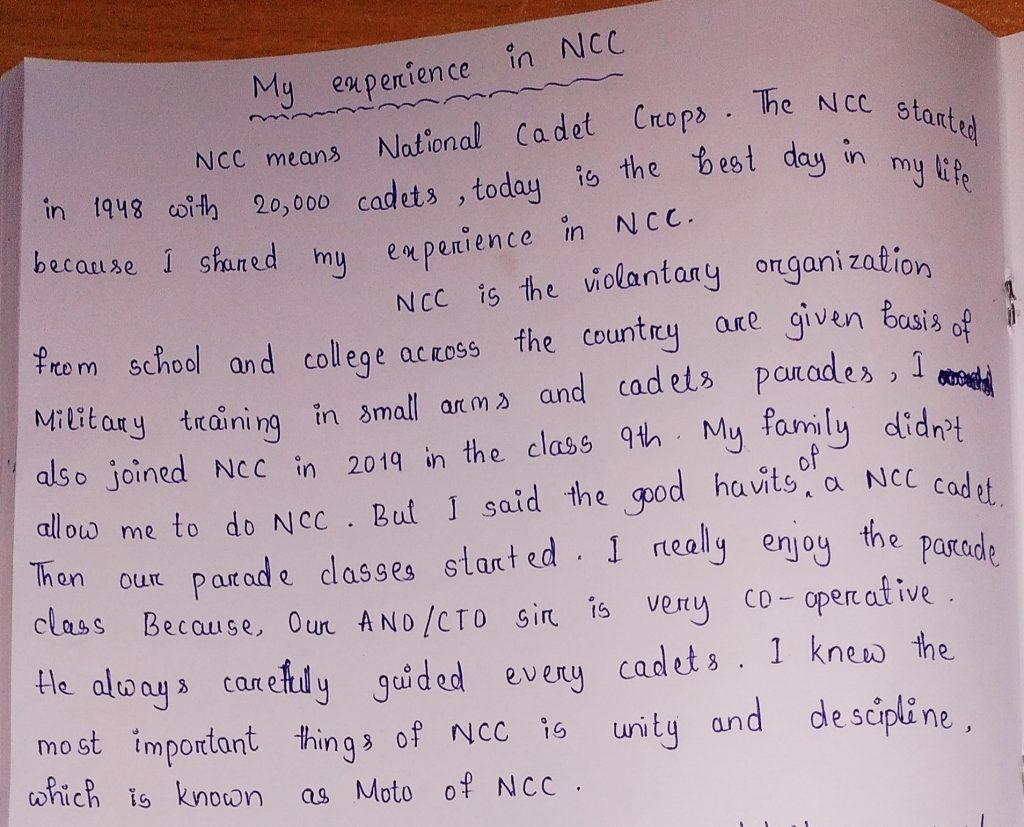 My experience in NCC
NCC means National Cadet Crops. The NCC started
in 1948 with 20,000 cadets, today is the best day in my life
because I shared my experience in NCC.
NCC is the violantary organization
from school and college across the country are given basis of
Military training in small arms and cadets parades, I
also joined NCC in 2019 in the class 9th. My family didn't
allow me to do NCC. But I said the good havits of a NCC cadet.
Then our parade classes started. I really enjoy the parade
class Because, Our ANO/CTO sir is very co-operative.
He always carefully guided every cadets. I knew the
most important things of NCC is unity and descipline,
which is known as Moto of NCC.